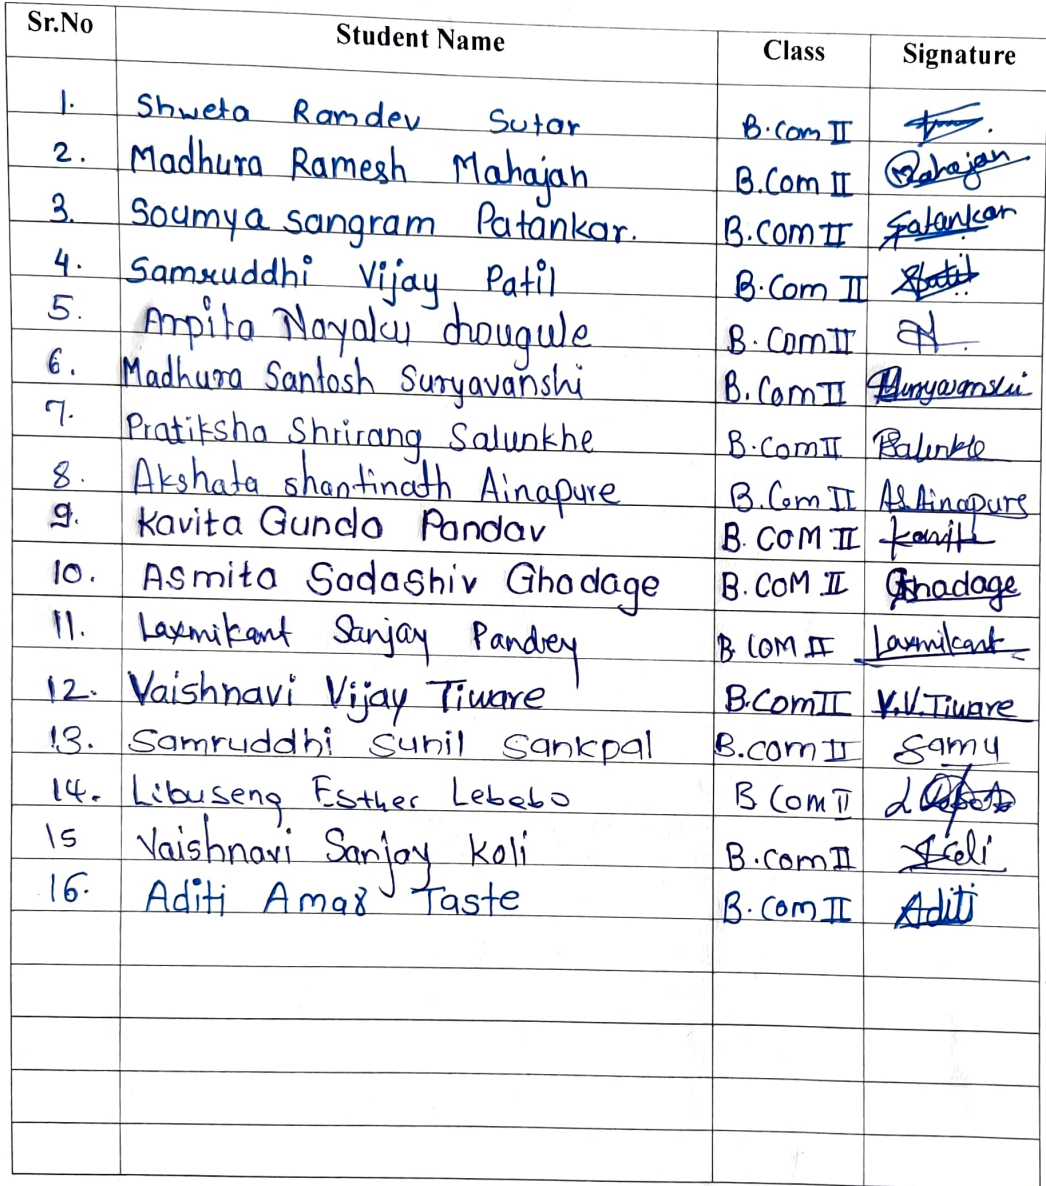 Sr.No Student Name Class Signature
1. Shweta Ramdev Sutar B.com II
2. Madhura Ramesh Mahajan B.Com II Mahajan
3. Soumya sangram Patankar. B.com II Patankar
4. Samruddhi Vijay Patil B.Com II
5. Arpita Nayaku chougule B.ComII
6. Madhura Santosh Suryavanshi B.ComII Suryavanshi
7. Pratiksha Shrirang Salunkhe B.ComII
8. Akshata shantinath Ainapure B.Com II AS.Ainapure
9. Kavita Gundo Pandav B. COM II
10. Asmita Sadashiv Ghodage B.COM II Ghadage
11. Laxmikant Sanjay Pandey B COM II Laxmikant
12. Vaishnavi Vijay Tiware B.ComII V.V.Tiware
13. Samruddhi Sunil Sankpal B.com II Samu
14. Libuseng Esther Lebebo B Com II
15 Vaishnavi Sanjay Koli B.comII Koli
16. Aditi Amar Taste B.com II Aditi